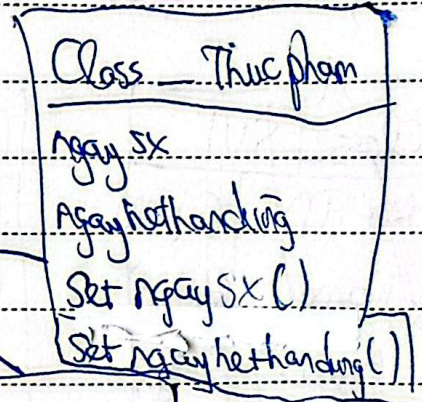 Class _ Thucpham
ngay sx
ngayhethandung
Set ngay sx ()
Set ngayhethandung()